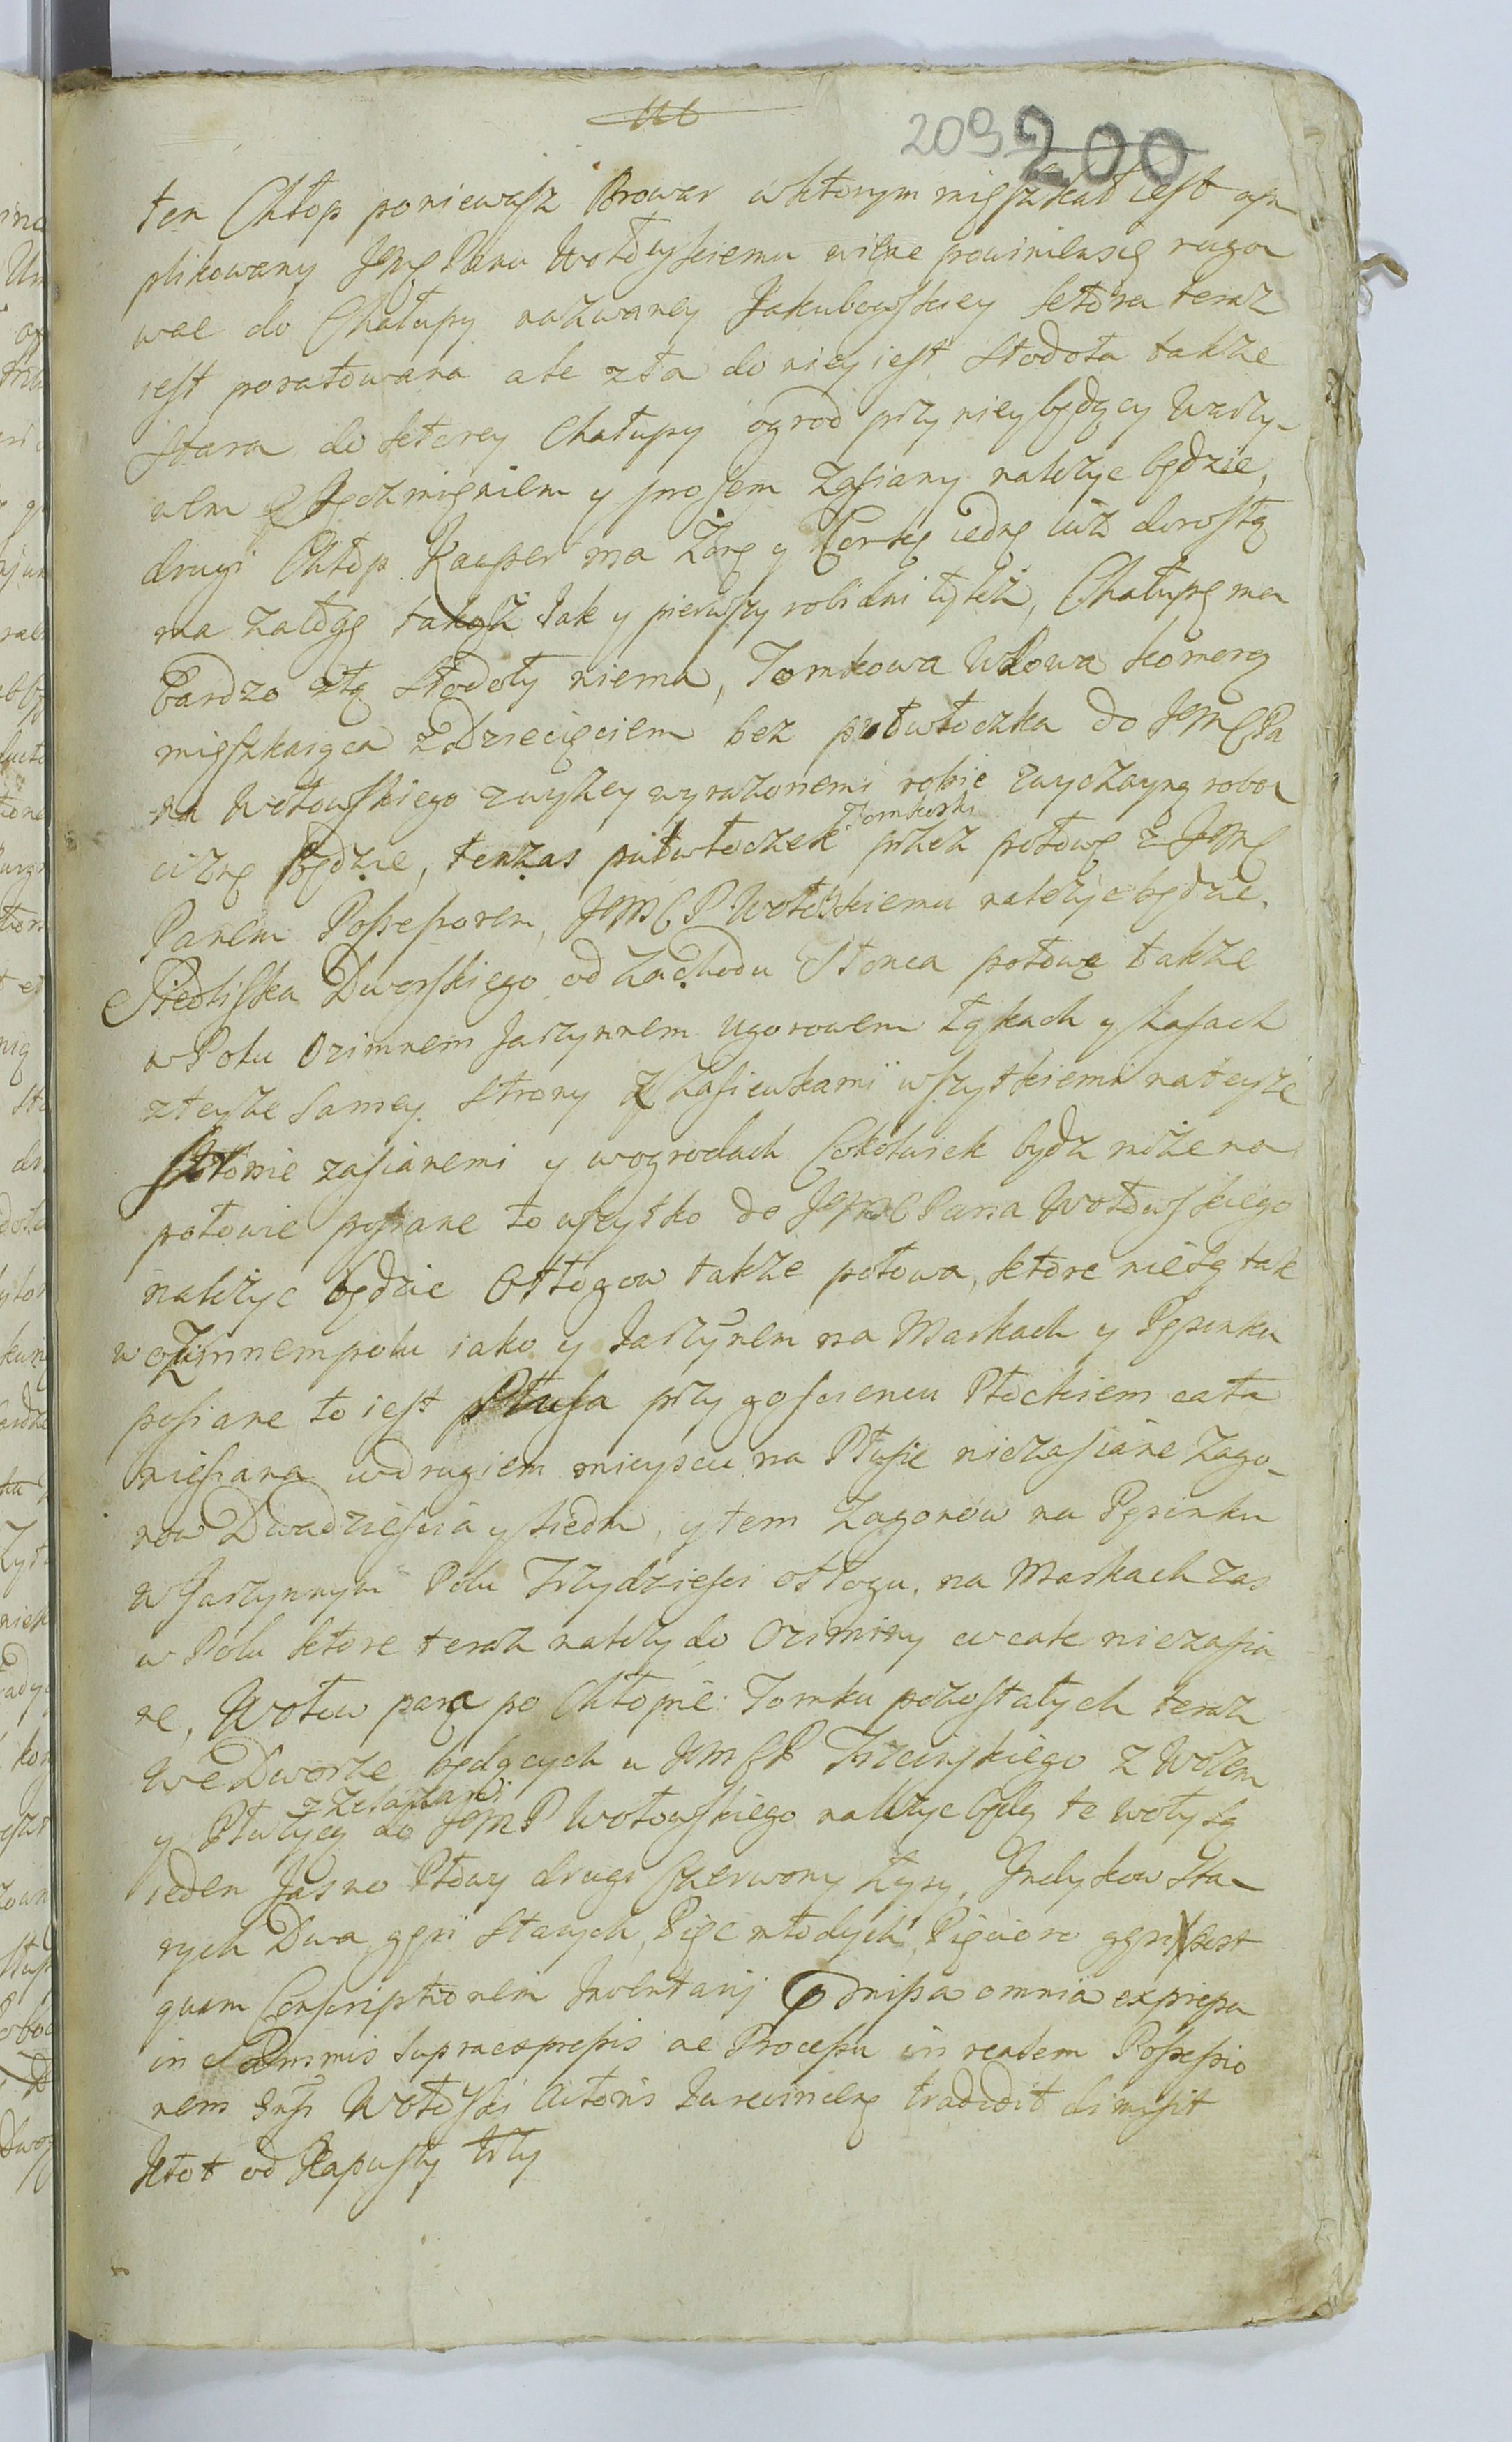 209 200
ten Chłop poniewasz Browar wktorym mięszkał iest ap
plikowany JMC Panu Wołowskiemu więne powinien się rugo
wac do Chałupy nazwaney Jakubowskiey ktora teraz
iest poratowana ale zła do niey iest Stodoła takze
Stara do ktorey Chałupy ogrod przy niey będący Warzy-
wem Jęczmięniem y prosem Zasiany nalezyc będzie,
drugi Chłop Kacper ma Zonę y Corkę iednę iuz dorosłą
ma załogę takąsz Jak y pierwszy robi dni tyleż, Chałupę ma
Bardzo złą Stodoły niema, Tomkowa Wdowa komorą
mięszkaiąca z Dziecięciem bez pułwłoczka do JMC Pa
na Wołowskiego zwyszey wyrazonemi robic zwyczayną robo
ciznę będzie, tenzas pułwłoczek Tomkoski przez połowę z JMC
Panem Possessorem, JMC P Wołowskiemu nalezyc będzie.
Siedliska Dworskiego od Zachodu Słonca połowę takze
w Polu Ozimnem Jarzynnem Ugorowem Łąkach y Lasach
zteyze Samey Strony z Zasiewkami wszytkiemi nateyże
Stronie zasianemi y wogrodach Cokolwiek bydz może na
połowie posiane to wszytko do JMC Pana Wołowskiego
nalezyc będzie Odłogow takze połowa, ktore niesą tak
w oZimnem polu iako y Jarzynem na Markach y Pęsinku
posiane to iest Płusa przy goscencu Płockiem cała
niesiana wdrugiem mieyscu na Płusie niezasiane Zago-
now Dwadziescia y siedm, ytem Zagonow na Pęsinku
w Jarzynnym Polu Trzydziesci odłogu, na Markach zas
w Polu ktore teraz nalezy do Oziminy wcale niezasia
ne, Wołow para po Chłopie Tomku pozostałych teraz
we Dworze będących u JMC P Trzcinskiego z Wozem
y Płuzycą z Zelazami do JMP Wołowskiego nalezyc będą te woły są
ieden Jasno Płowy drugi Czerwony Łysy, Indykow Sta-
rych Dwa gęsi Starych Pięc młodych Pięcioro gęsi post
quam Conscriptionem Inventarij omnia expressa
in supraexpressis ac Processu in realem Possessio
nem Wołowski Actoris tradidit dimisit
Kłot od Kapusty trzy